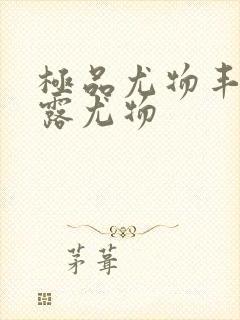 極品尤物丰
露尤物
茅葺